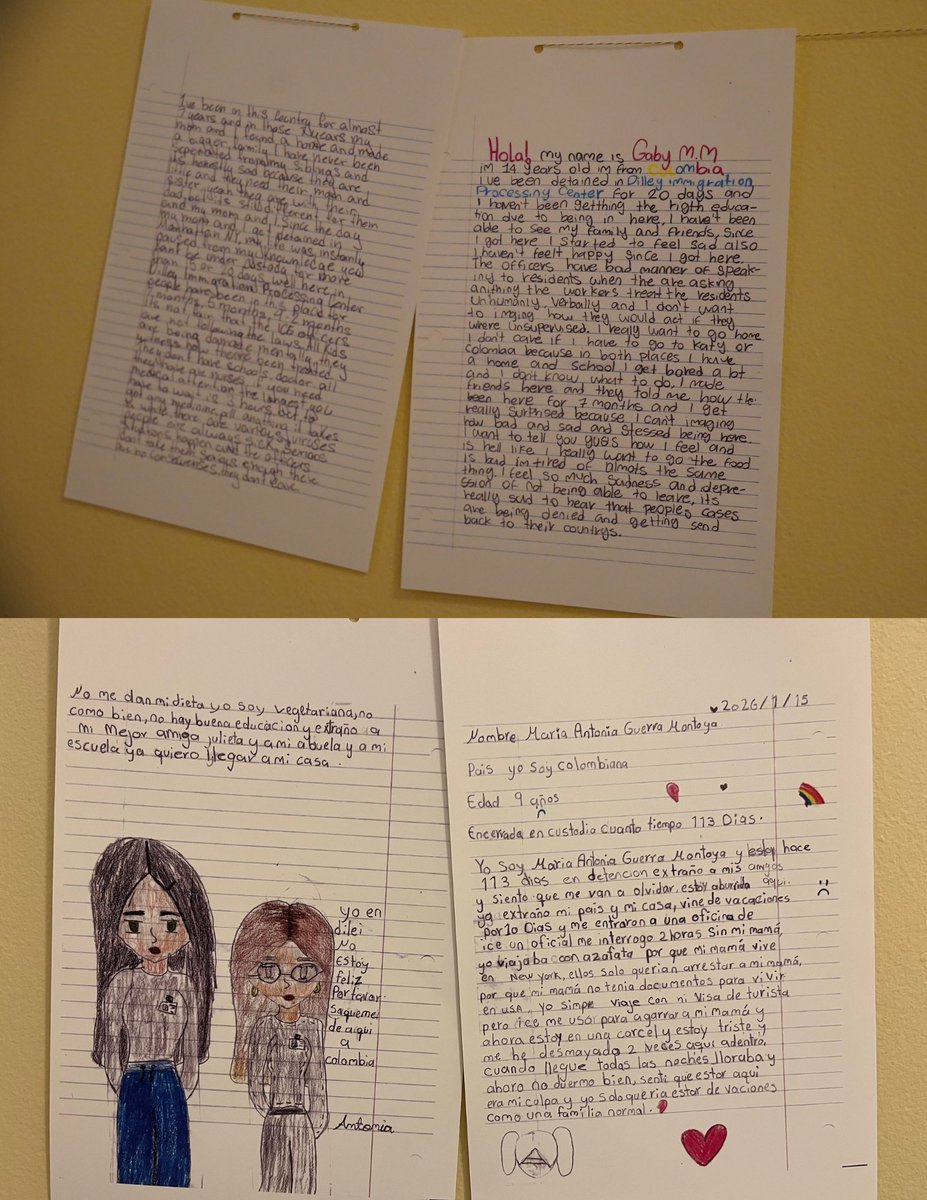 I've been in this country for almost
7 years and in those years my
mom and I found a home and made
a bigger family, I have never been
seperated from my siblings and
its honestly sad because they are
little and they need their mom and
sister, yeah they are with their
dad but its still different for them
and my mom and I. Since the day
my mom and I get detained in
Manhattan NY, my life was instantly
paused, from my knowledge you
cant be under custody for more
than 15 or 20 days well here in
Dilley Immigration Processing Center
people have been in this place for
months, 5 months, 4-6 months
Its not fair that the ICE officers
are not following the laws. All Kids
are being damage mentally, they
witness how there been treated
They don't have schools, doctor all
they have are nurses, if you need
medical attention the longest you
have to wait is 3 hours, but to
get any medicine, pill, anything it takes
a while, there are various viruses
people are allways sick, serious
situations happen and the officers
don't take them serious enough there
are no consequences, they don't care
Hola! my name is Gaby M.M
im 14 years old im from colombia
I've been detained in Dilley immigration
Processing Center for 20 days and
I haven't been getthing the rigth educa-
tion due to being in here, I havet been
able to see my family and friends, Since
I got here I started to feel sad also
I haven't feelt happy since I got here.
The officers have bad manner of speak-
ing to residents when the are asking
anithing the workers treat the residents
unhumanly, verbally and I don't want
to imging how they would act if they
where unsupervised. I really want to go home
I don't care if I have to go to Katy or
Colombia because in both places I have
a home and school I get bored a lot
and I don't know what to do, I made
friends here and they told me how the
been here for 7 months and I get
really surprised because I cant imaging
how bad and sad and stessed being here
I want to tell you guys how I feel and
is hell like I really want to go the food
is bad im tired of almots the same
thing I feel so much sadness and depre-
ssion of not being able to leave, its
really sad to hear that peoples cases
are being denied and getting send
back to their countrys.
No me dan mi dieta yo soy vegetariana, no
como bien, no hay buena educacion y extraño a
mi mejor amiga julieta y a mi abuela y a mi
escuela ya quiero llegar a mi casa.
yo en
dilei
No
Estoy
feliz
Porfavor
saqueme
de aqui
a
colombia
Antonia
2026/1/15
Nombre Maria Antonia Guerra Montoya
Pais yo soy colombiana
Edad 9 años
Encerrada en custodia cuanto tiempo 113 Dias.
Yo soy Maria Antonia Guerra Montoya y estoy hace
113 dias en detencion extraño a mis amigos
y siento que me van a olvidar, estoy aburrida aqui.
ya extraño mi pais y mi casa, vine de vacaciones
por 10 Dias y me entraron a una oficina de
ice un oficial me interrogo 2 horas sin mi mamá,
yo viajaba con azafata por que mi mamá vive
en New york, ellos solo querian arrestar a mi mamá,
por que mi mamá no tenia documentos para vivir
en usa, yo simpre viaje con mi visa de turista
pero ice me usó para agarrar a mi mamá y
ahora estoy en una carcel y estoy triste y
me he desmayado 2 veces aqui adentro,
cuando llegue todas las noches lloraba y
ahora no duermo bien, senti que estar aqui
era mi culpa y yo solo queria estar de vaciones
como una familia normal.